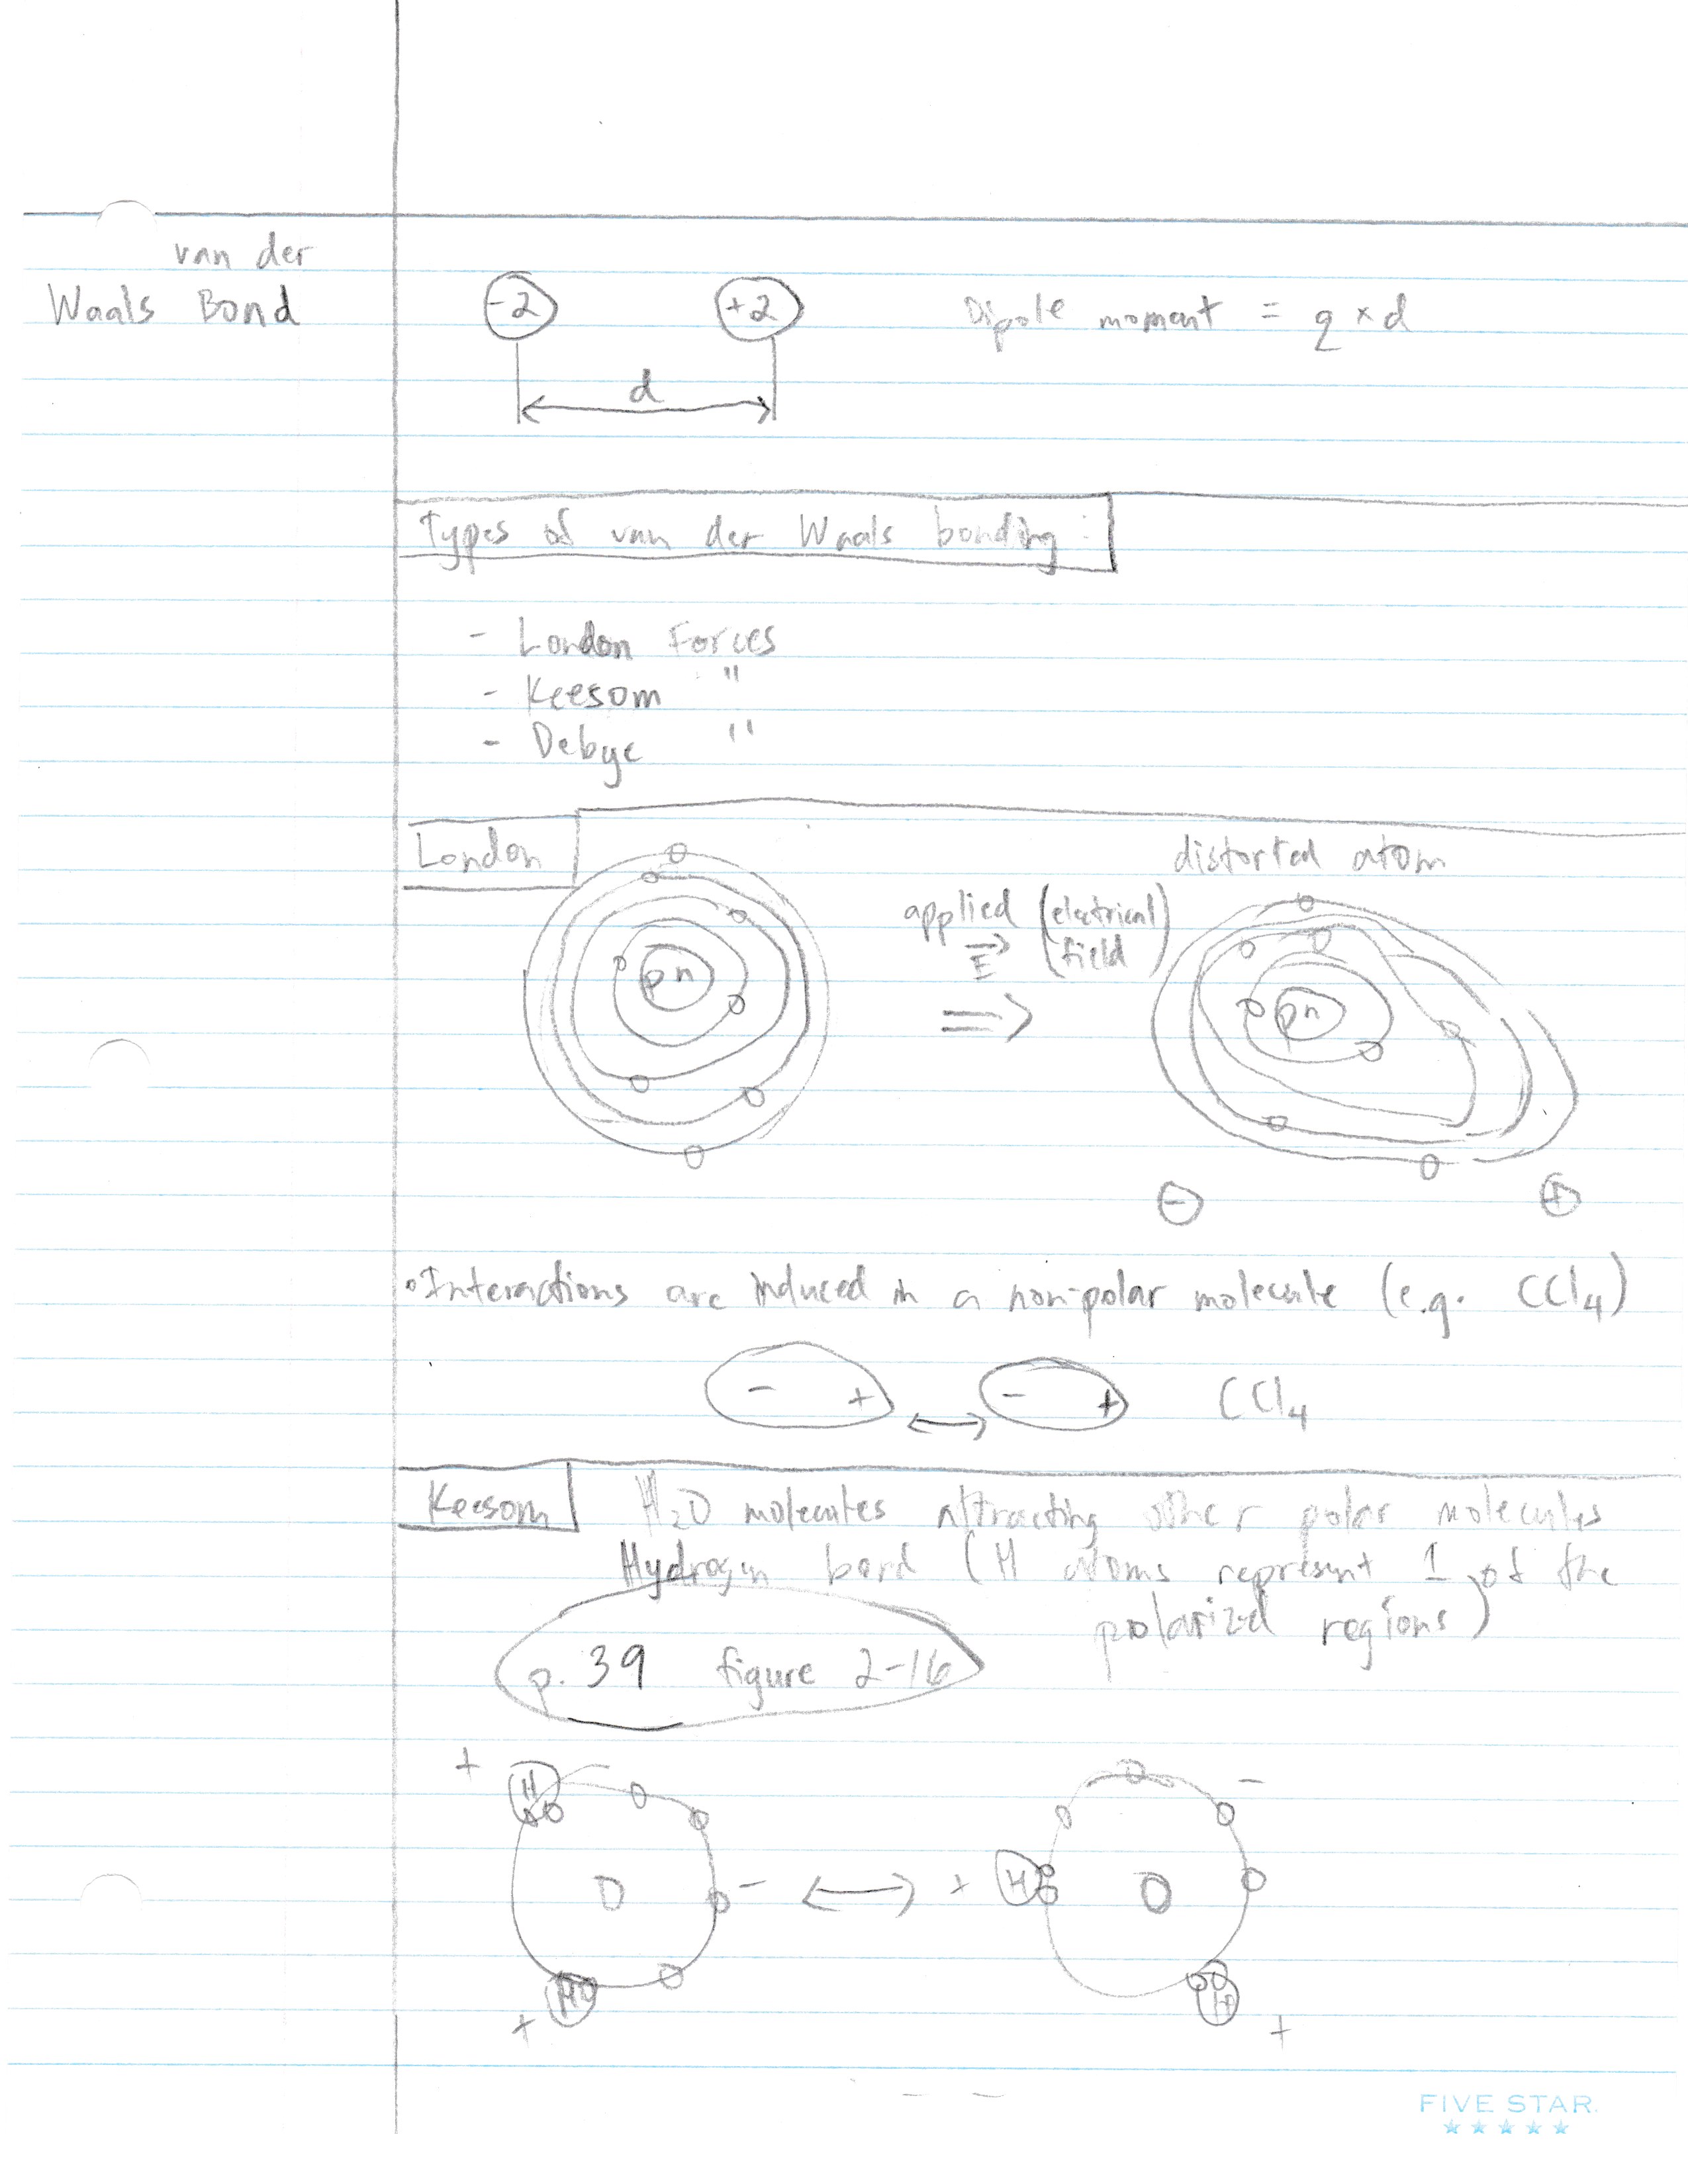 van der
Waals Bond
-2 +2 Dipole moment = q × d
d
Types of van der Waals bonding:
- London Forces
- Keesom "
- Debye "
London
distorted atom
applied (electrical
E field)
pn
pn
⇒
- +
• Interactions are induced in a non-polar molecule (e.g. CCl4)
- + ↔ - + CCl4
Keesom H2O molecules attracting other polar molecules
Hydrogen bond (H atoms represent 1 of the
polarized regions)
p. 39 figure 2-16
+ H -
O - ↔ + H O
+ H H +
FIVE STAR.
★★★★★